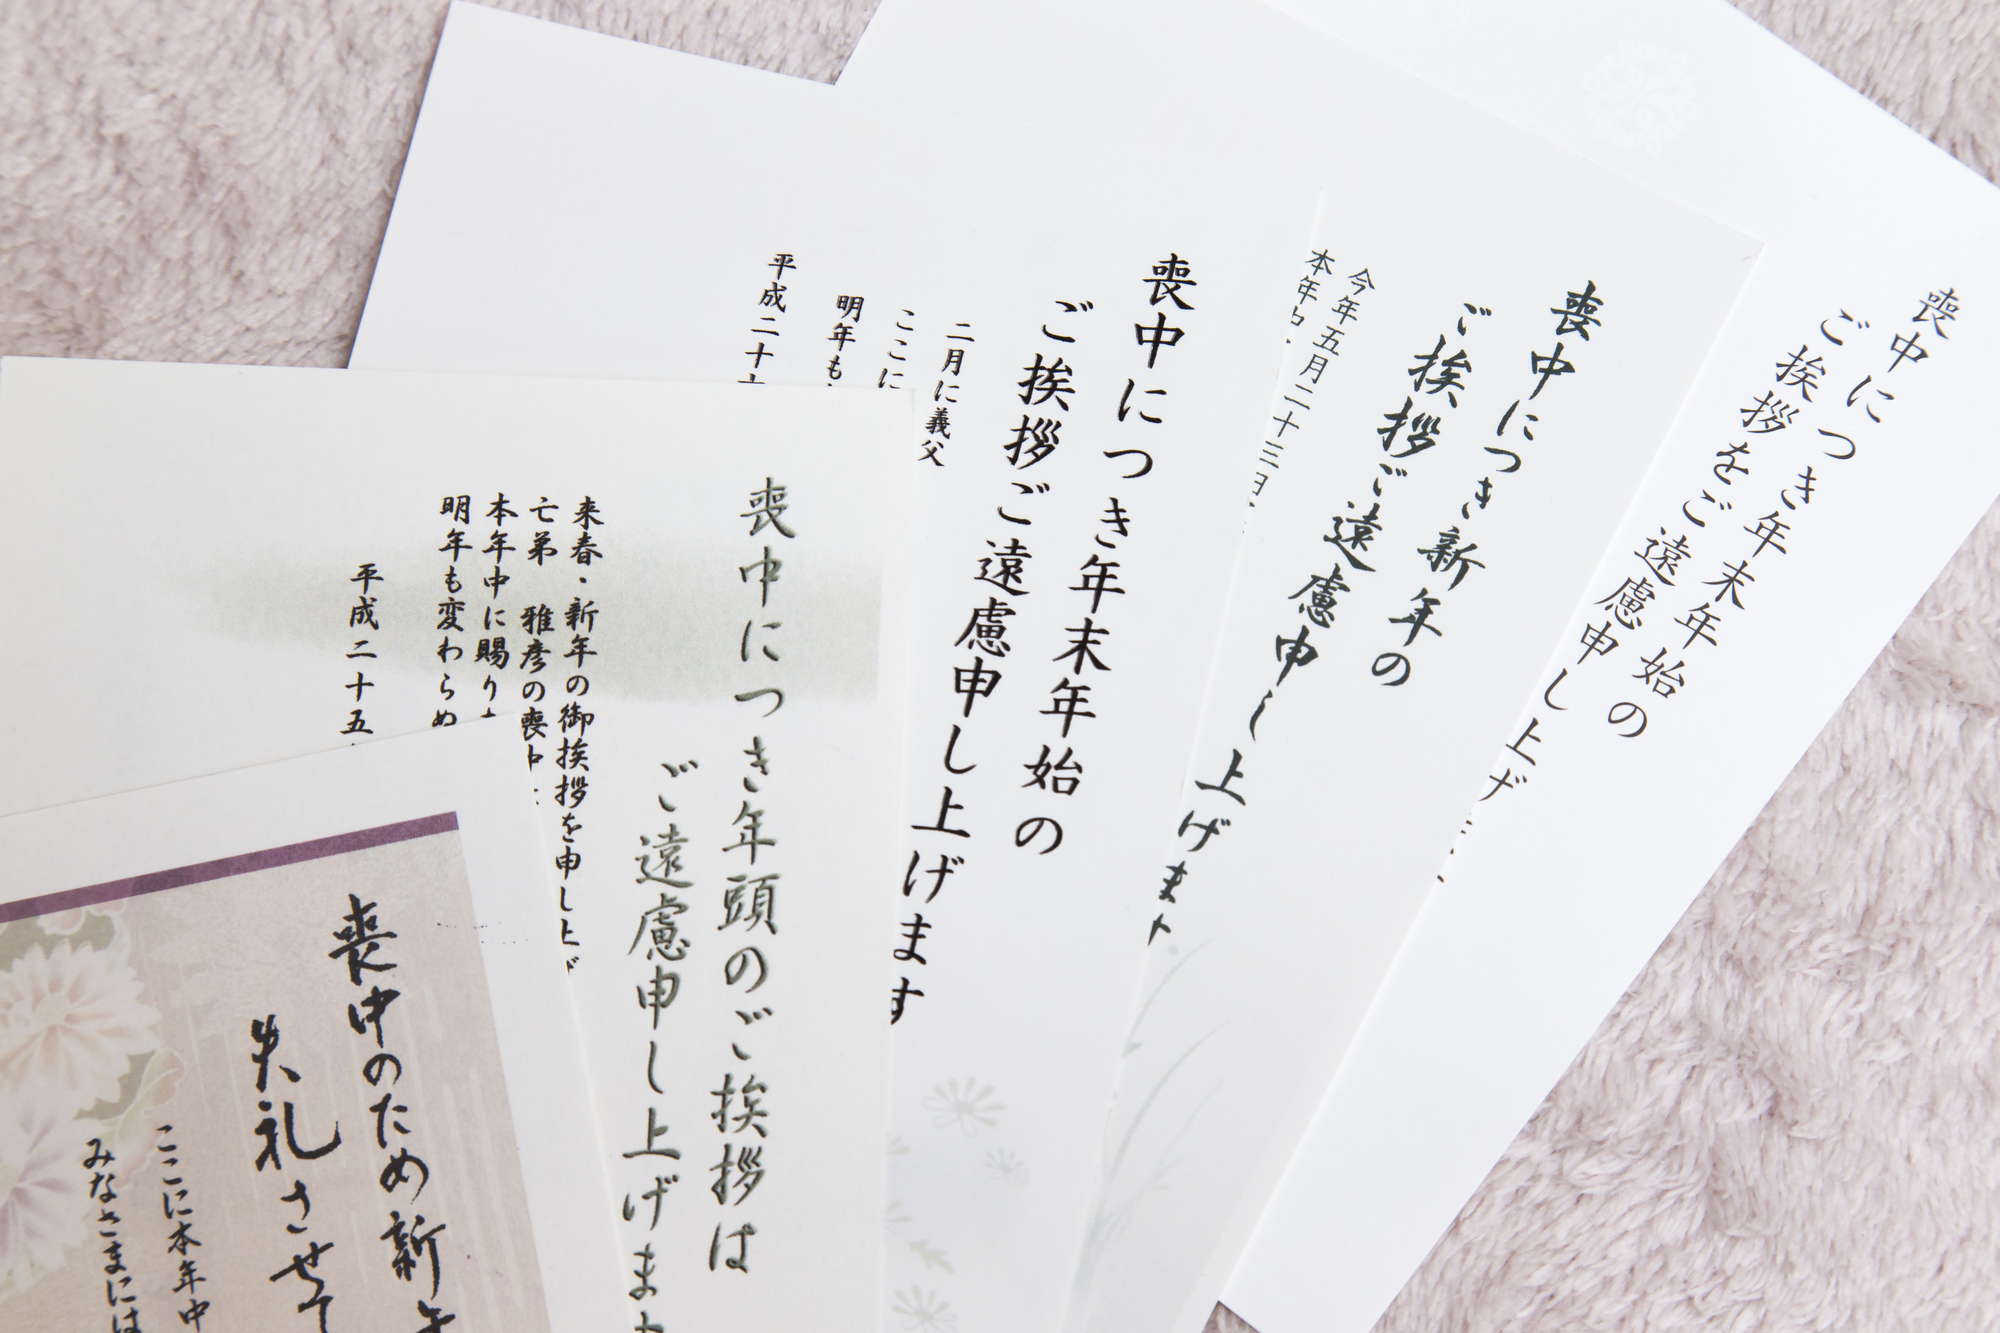 喪中につき年末年始の
ご挨拶をご遠慮申し上げ
喪中につき新年の
ご挨拶ご遠慮申し上げま
今年五月二十三日
本年中
喪中につき年末年始の
ご挨拶ご遠慮申し上げます
二月に義父
ここに
明年も
平成二十
喪中につき年頭のご挨拶は
ご遠慮申し上げま
来春・新年の御挨拶を申し上げ
亡弟 雅彦の喪中
本年中に賜り
明年も変わらぬ
平成二十五
喪中のため新年
失礼させて
ここに本年中
みなさまには